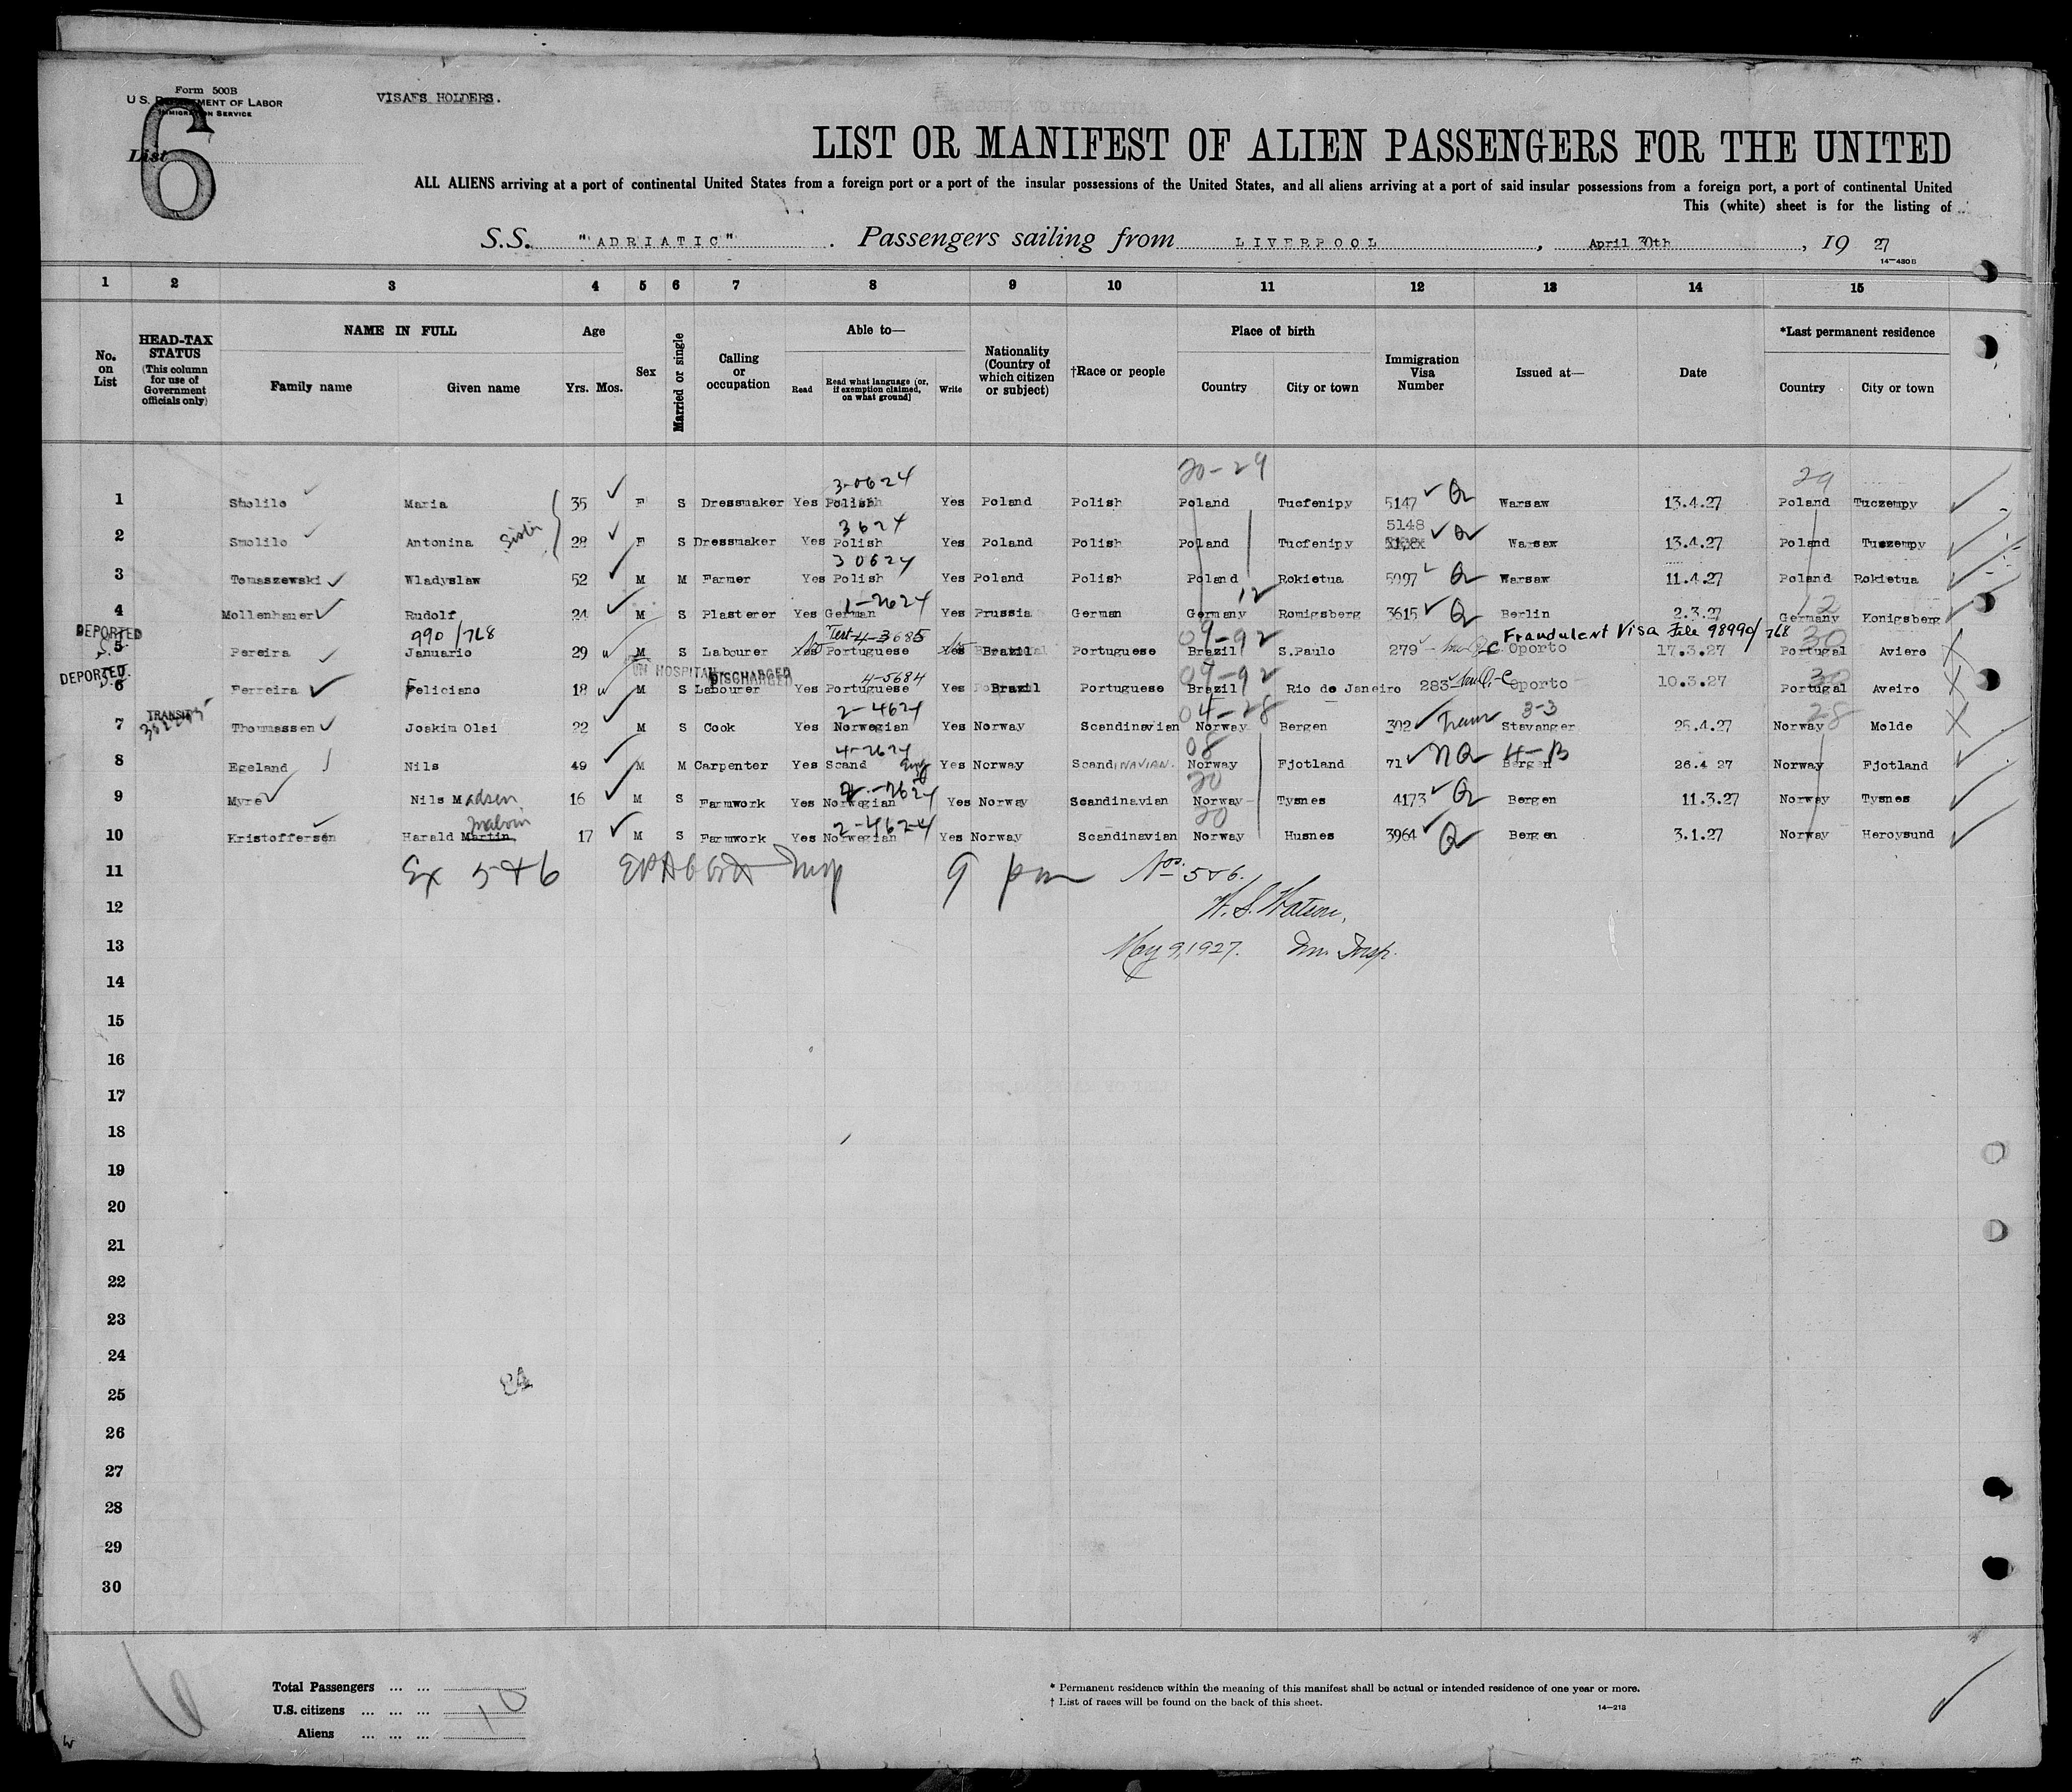 Form 500B
U. S. DEPARTMENT OF LABOR
IMMIGRATION SERVICE
VISAES HOLDERS.
List 6
LIST OR MANIFEST OF ALIEN PASSENGERS FOR THE UNITED
ALL ALIENS arriving at a port of continental United States from a foreign port or a port of the insular possessions of the United States, and all aliens arriving at a port of said insular possessions from a foreign port, a port of continental United
This (white) sheet is for the listing of
S.S. "ADRIATIC" . Passengers sailing from LIVERPOOL , April 30th , 19 27
14—430B
1 2 3 4 5 6 7 8 9 10 11 12 13 14 15
No. on List
HEAD-TAX STATUS (This column for use of Government officials only)
NAME IN FULL
Family name Given name
Age
Yrs. Mos.
Sex
Married or single
Calling or occupation
Able to—
Read Read what language [or, if exemption claimed, on what ground] Write
Nationality (Country of which citizen or subject)
†Race or people
Place of birth
Country City or town
Immigration Visa Number
Issued at—
Date
*Last permanent residence
Country City or town
20-29 29
3-0624
1 Smolilo Maria 35 F S Dressmaker Yes Polish Yes Poland Polish Poland Tucfenipy 5147 Q Warsaw 13.4.27 Poland Tuczempy
3624 5148
2 Smolilo Antonina Sister 28 F S Dressmaker Yes Polish Yes Poland Polish Poland Tucfenipy Q Warsaw 13.4.27 Poland Tuszempy
30624
3 Tomaszewski Wladyslaw 52 M M Farmer Yes Polish Yes Poland Polish Poland Rokietua 5097 Q Warsaw 11.4.27 Poland Rokietua
1-2624 12 12
4 Mollenhauer Rudolf 24 M S Plasterer Yes German Yes Prussia German Germany Romigsberg 3615 Q Berlin 2.3.27 Germany Konigsberg
DEPORTED 990/768 Test 4-3685 09-92 Fraudulent Visa File 98990/768 30
5 Pereira Januario 29 M S Labourer Yes Portuguese Yes Brazil Portuguese Brazil S.Paulo 279 Oporto 17.3.27 Portugal Aviero
DEPORTED. IN HOSPITAL DISCHARGED 4-5684 09-92 30
6 Ferreira Feliciano 18 M S Labourer Yes Portuguese Yes Brazil Portuguese Brazil Rio de Janeiro 283 Oporto 10.3.27 Portugal Aveiro
TRANSIT 2-4624 04-28 3-3 28
7 Thommassen Joakim Olai 22 M S Cook Yes Norwegian Yes Norway Scandinavian Norway Bergen 302 Trans Stavanger 25.4.27 Norway Molde
4-2624 08
8 Egeland Nils 49 M M Carpenter Yes Scand Eng Yes Norway ScandINAVIAN. Norway Fjotland 71 NQ 4-B Bergen 26.4 27 Norway Fjotland
2-2624 20
9 Myre Nils Madsen 16 M S Farmwork Yes Norwegian Yes Norway Scandinavian Norway Tysnes 4173 Q Bergen 11.3.27 Norway Tysnes
Malvin 2-4624 20
10 Kristoffersen Harald Martin 17 M S Farmwork Yes Norwegian Yes Norway Scandinavian Norway Husnes 3964 Q Bergen 3.1.27 Norway Heroysund
11 Ex 5+6 Insp 9 pm Nos. 5 & 6.
12 W. S. Watson,
13 May 9, 1927. Imm. Insp.
14
15
16
17
18
19
20
21
22
23
24
25
26
27
28
29
30
6
Total Passengers ... ...
U.S. citizens ... ... ... 10
Aliens ... ... ...
* Permanent residence within the meaning of this manifest shall be actual or intended residence of one year or more.
† List of races will be found on the back of this sheet.
14—218